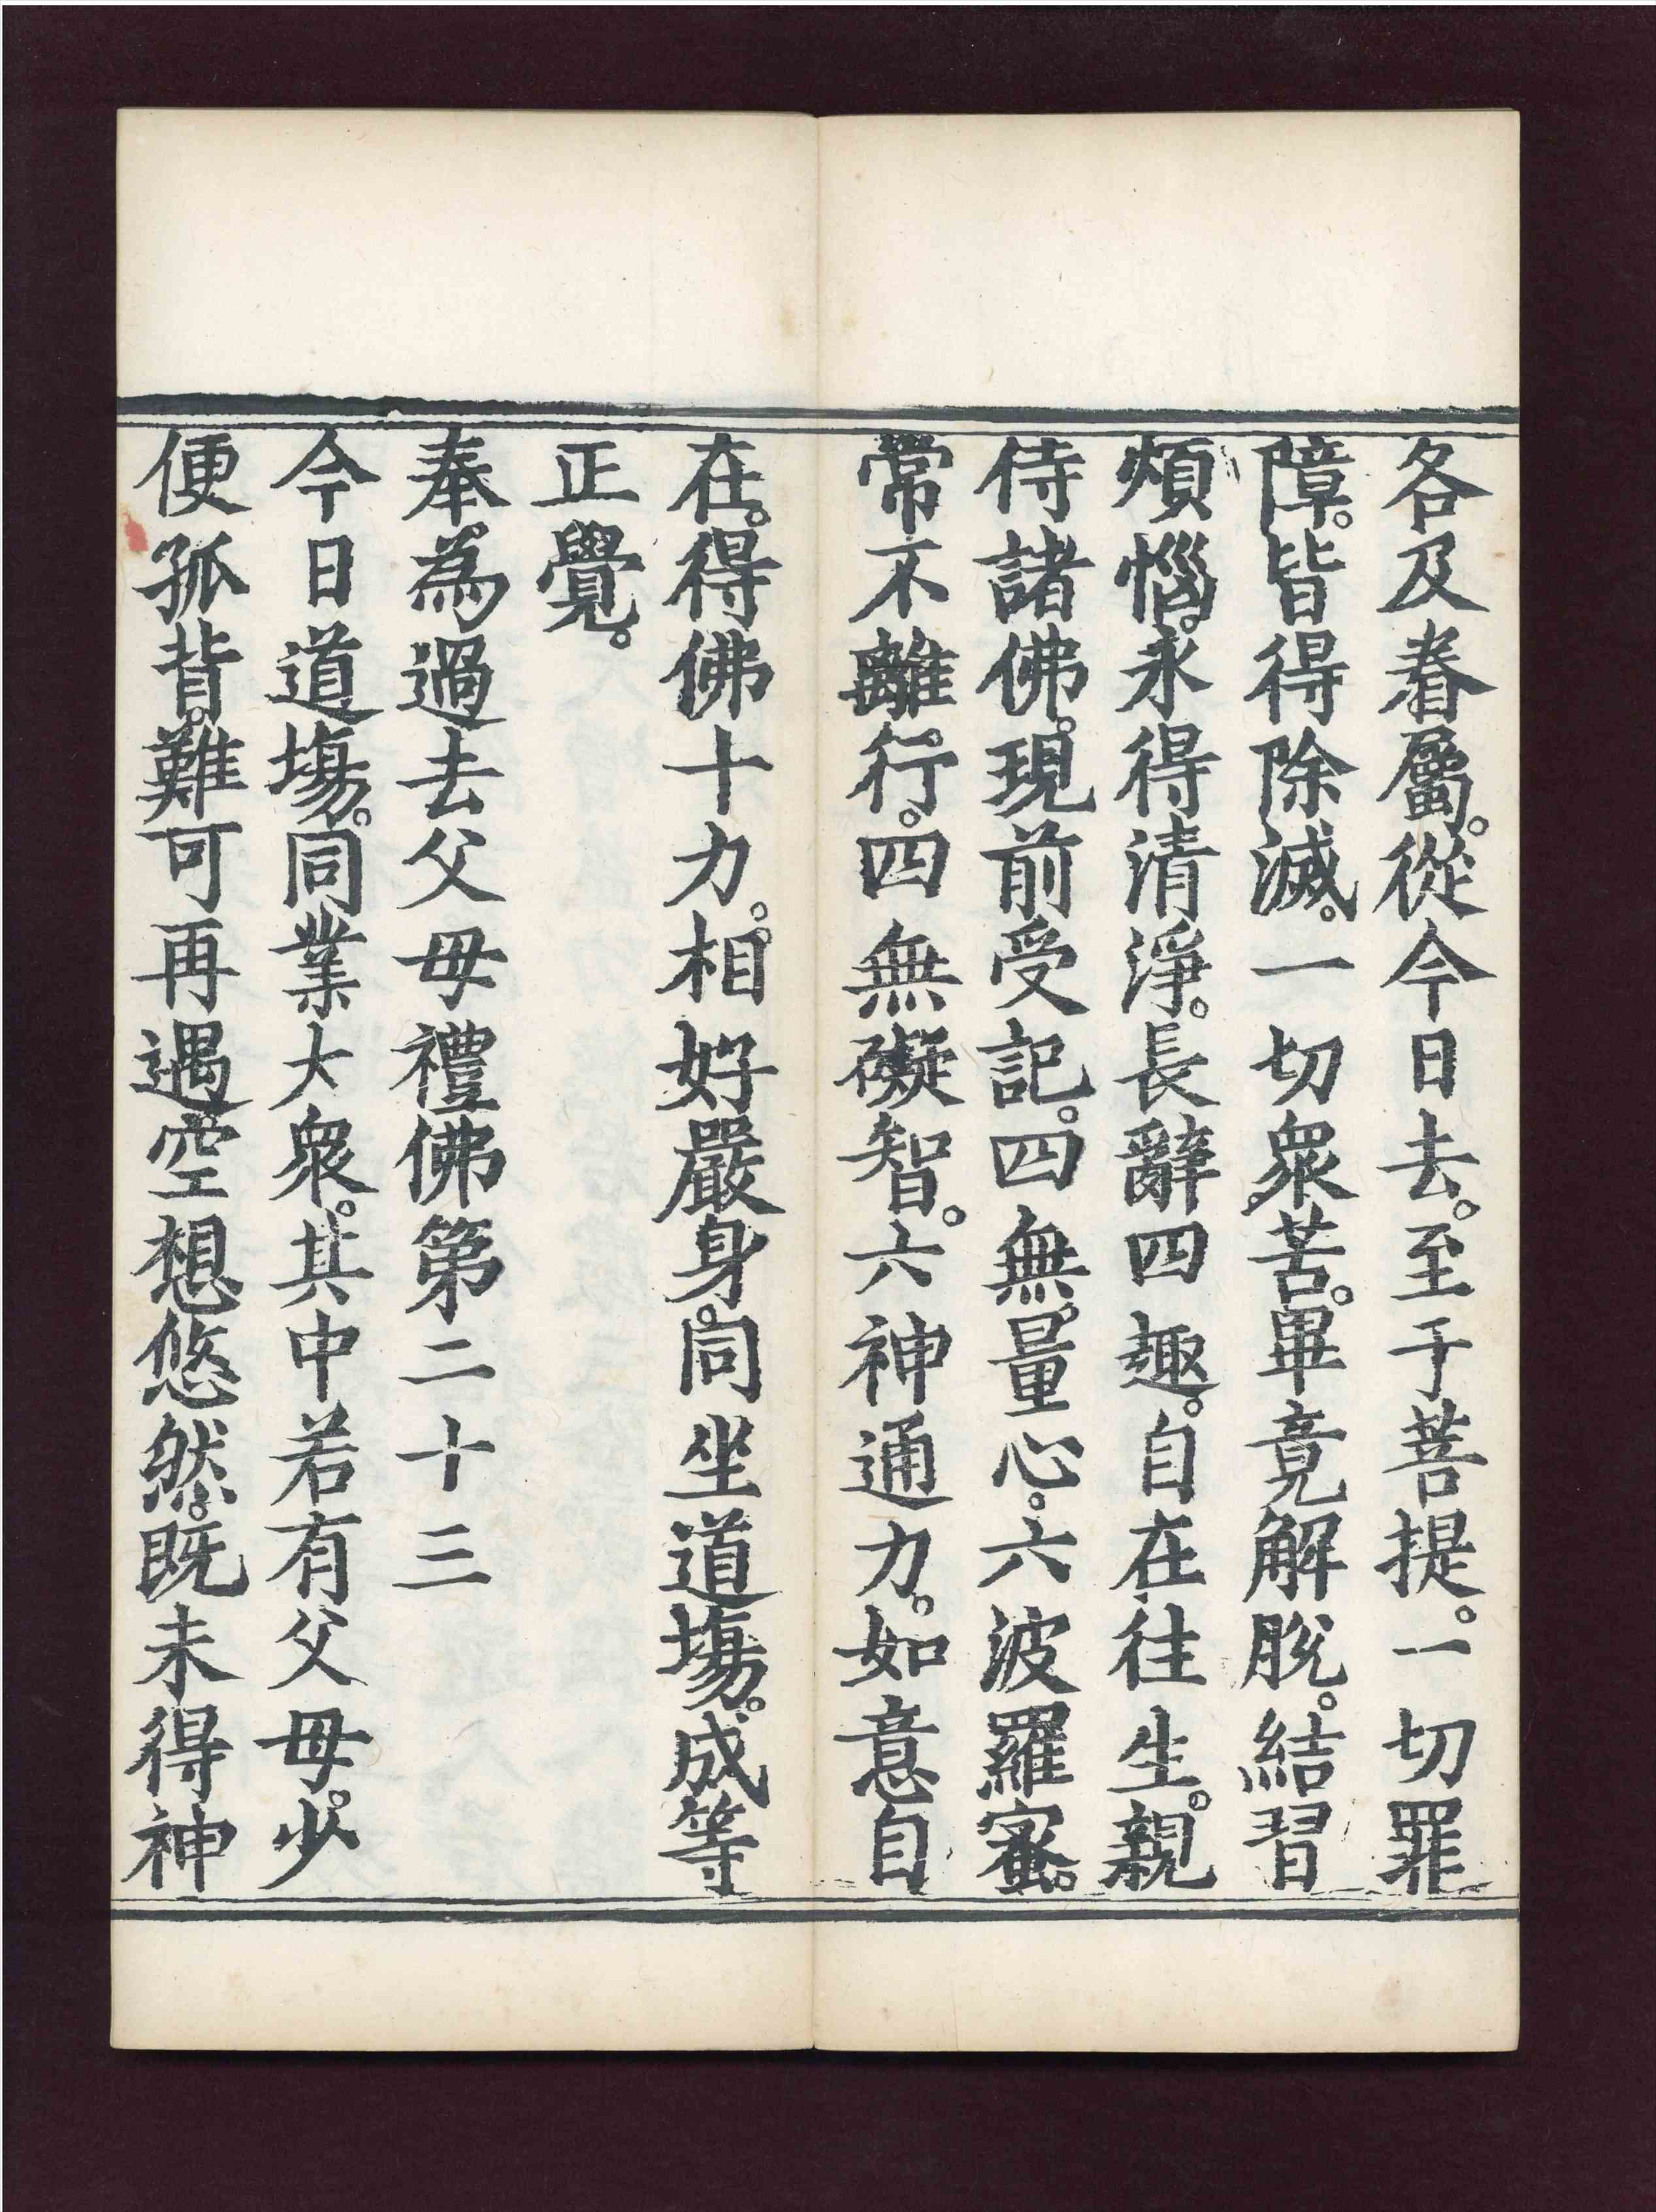 各及眷屬。從今日去。至于菩提。一切罪
障。皆得除滅。一切衆苦。畢竟解脫。結習
煩惱。永得清淨。長辭四趣。自在往生。親
侍諸佛。現前受記。四無量心。六波羅蜜。
常不離行。四無礙智。六神通力。如意自
在。得佛十力。相好嚴身。同坐道塲。成等
正覺。
奉爲過去父母禮佛第二十三
今日道塲。同業大衆。其中若有父母。少
便孤背。難可再遇空想悠然。既未得神